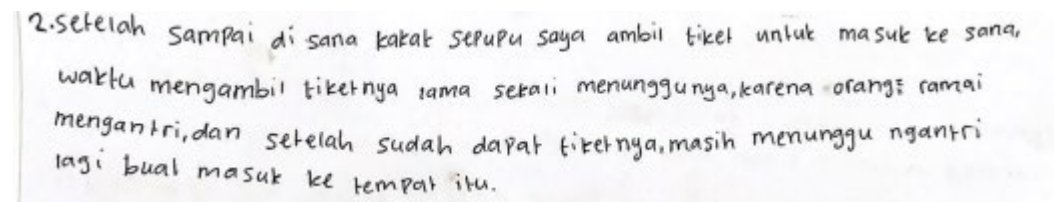 2. setelah sampai di sana kakak sepupu saya ambil tiket untuk masuk ke sana,
waktu mengambil tiketnya lama sekali menunggunya, karena orang² ramai
mengantri, dan setelah sudah dapat tiketnya, masih menunggu ngantri
lagi buat masuk ke tempat itu.